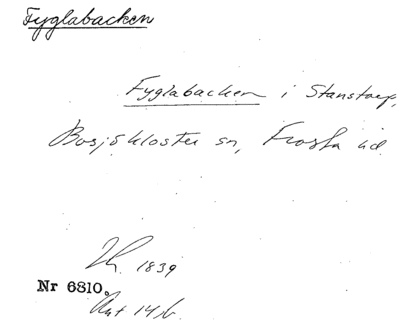 Fyglabacken
Fyglabacken i Stanstorp,
Bosjökloster sn, Frosta hd
1839
Nr 6810.
Ant 14 b.